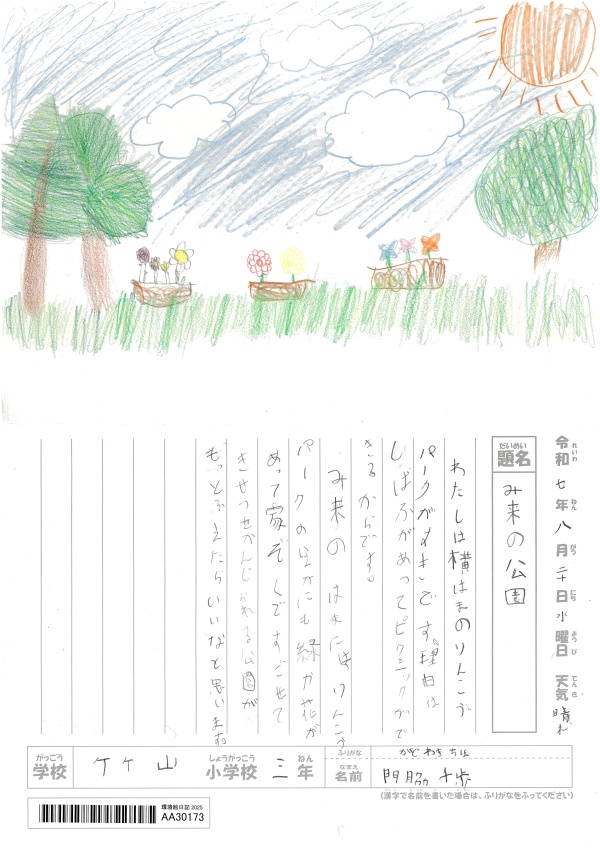 令和七年八月二十日水曜日 天気晴れ
れいわ ねん がつ にち ようび てんき
だいめい
題名 み来の公園
わたしは横はまのりんこう
パークがすきです。理由は
しばふがあってピクニックがで
きるからです。
み来の は まに は りんこう
パークのほかにも緑や花が
あって家ぞくですごせて
きせつをかんじられる公園が
もっとふえたらいいなと思います。
がっこう しょうがっこう ねん
学校 竹山 小学校 三年
ふりがな かどわき ちほ
なまえ
名前 門脇 千歩
(漢字で名前を書いた場合は、ふりがなをふってください)
環境絵日記 2025
AA30173